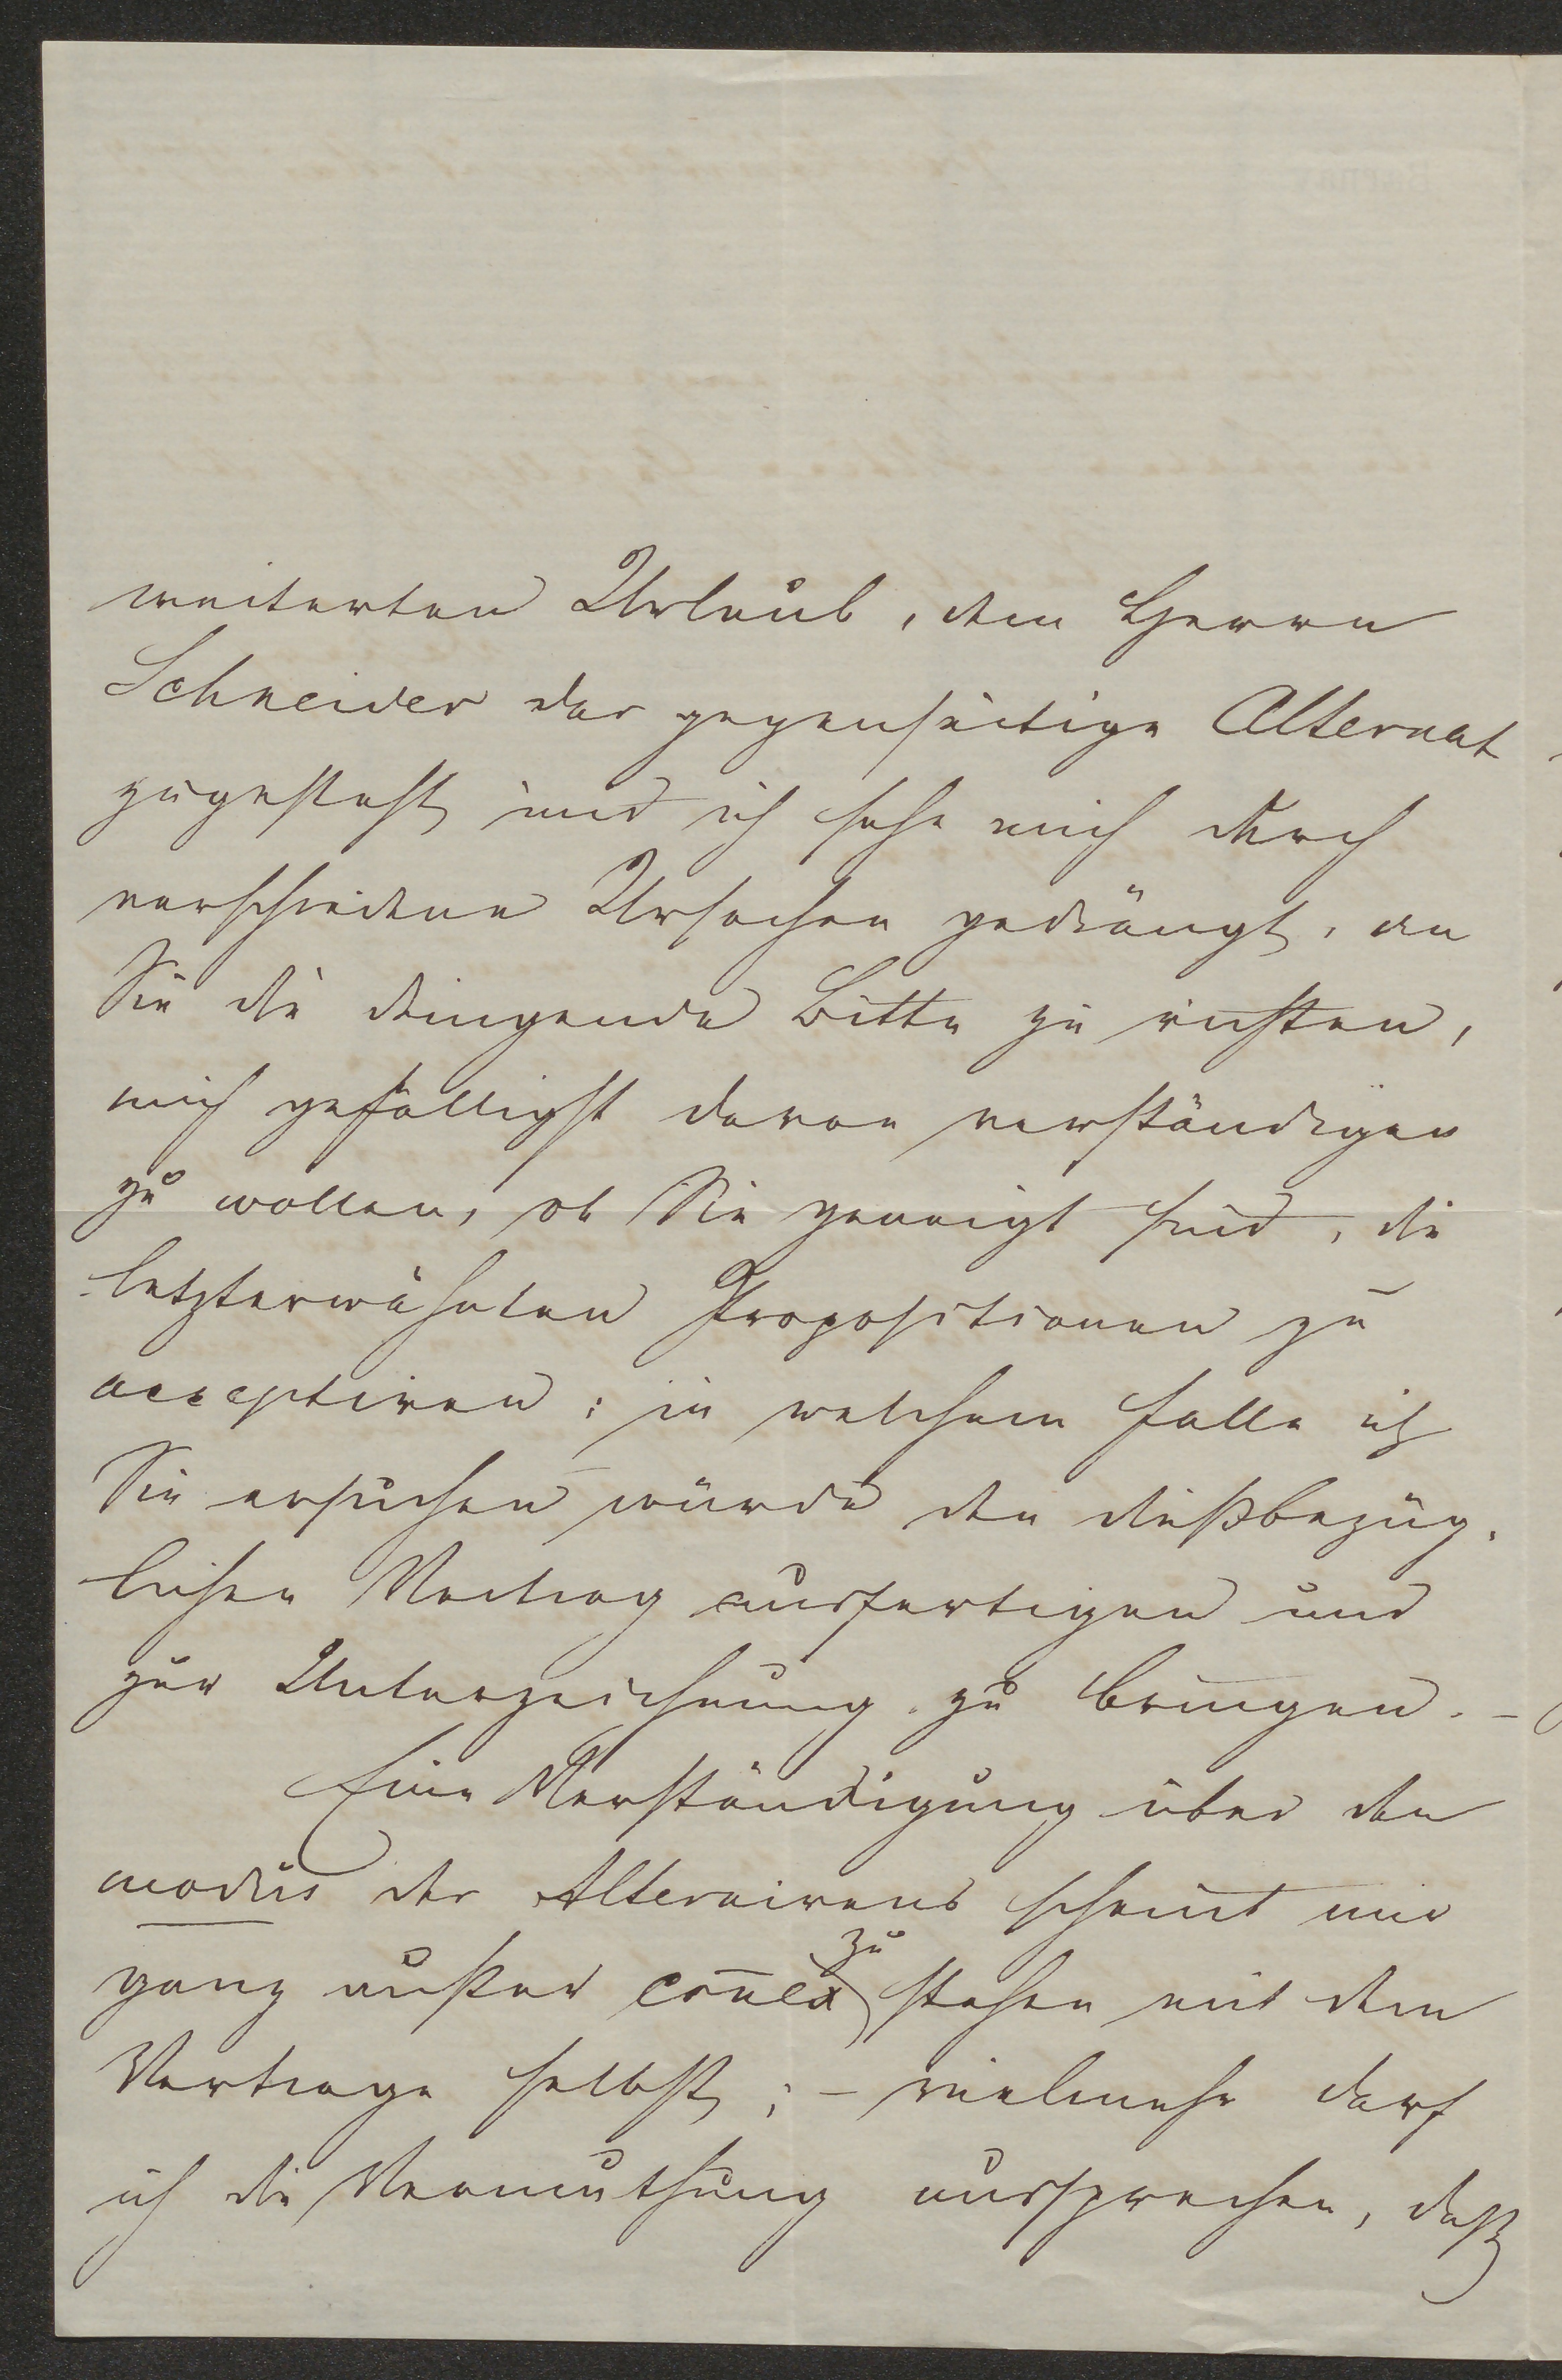 weiterten Urlaub, dem Herrn
Schneider das gegenseitige Alternat
zugesteht und ich sehe mich durch
verschiedene Ursachen gedrängt, an
Sie die dringende Bitte zu richten,
mich gefälligst davon verständigen
zu wollen, ob Sie geneigt sind, die
letzterwähnten Propositionen zu
acceptiren; in welchem Falle ich
Sie ersuchen würde den dießbezüg-
lichen Vertrag ausfertigen und
zur Unterzeichnung zu bringen. –
Eine Verständigung über den
modus des Alternirens scheint mir
ganz außer connex zu stehen mit dem
Vertrage selbst; – vielmehr darf
ich die Vermuthung aussprechen, daß